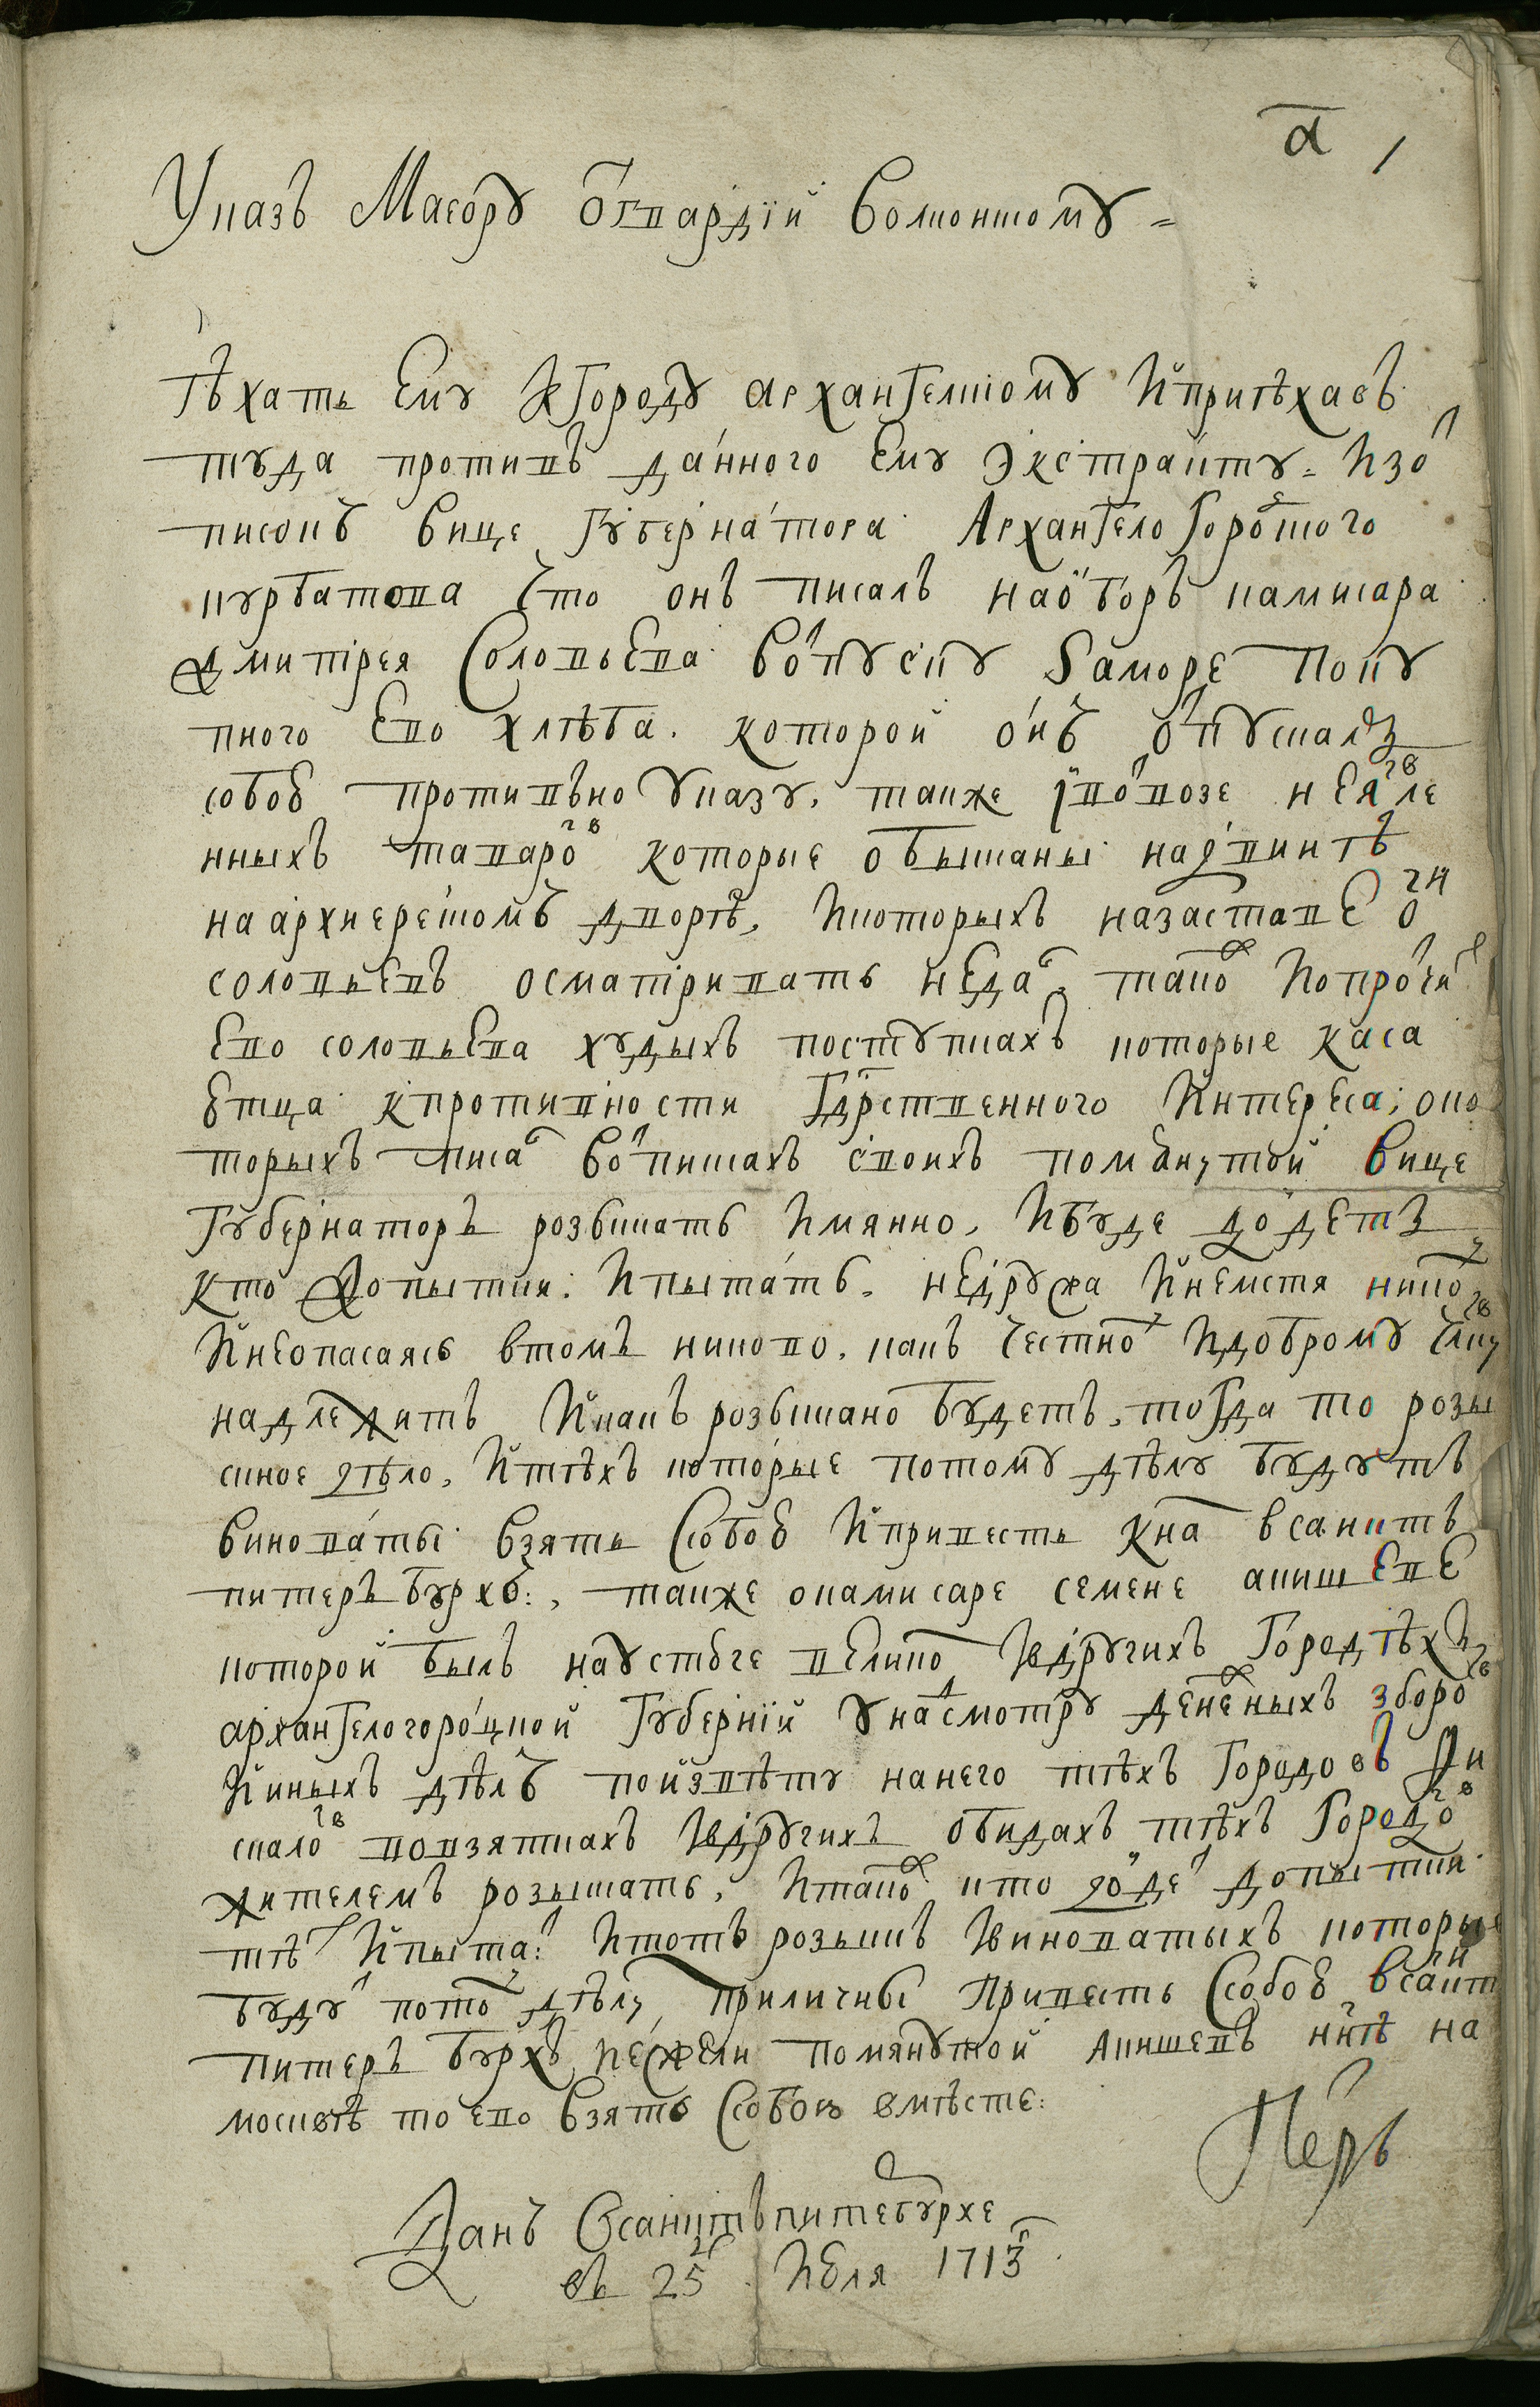 а 1
Указъ Маеору отгвардіи волконскому =
ѣхать ему к городу архангелскому и приѣхавъ
туда противъ данного ему экстракту = и з от
писокъ вице губернатора Архангелогороцкого
курбатова что онъ писалъ на обор камисара
дмитрея Соловьева в отпуску за море поку
пного ево хлѣба. которой онъ отпускалъ
собою противъно указу. также і о вывозе неявле
нных таваров которые обысканы на двинѣ
на архиерескомъ дворѣ, и которых на заставе он
соловьевъ осматривать не дал, також и о протчих
ево соловьева худыхъ поступках которые каса
ютца к противности гдрственного интереса; о ко
торыхъ писал в отписках своихъ помянутой вице
губернаторъ розыскать имянно, и буде дойдетъ
кто до пытки: и пытать. не дружа и не мстя никому
и не опасаясь в томъ никово. какъ честному и доброму члку
надлежитъ и какъ розыскано будетъ, тогда то розы
скное дѣло, и тѣхъ которые по тому дѣлу будутъ
виноваты взять с собою и привесть к нам в санктъ
питеръбурхъ:, также о камисаре семене акишеве
которой былъ на устюге великом и в другихъ городѣхъ
архангелогороцкой губерніи у надсмотру денежныхъ зборов
и иныхъ дѣлъ по извѣту на него тѣхъ городовъ фи
скалов во взяткахъ и в другихъ обидахъ тѣхъ городов
жителемъ розыскать, и також кто дойдет до пытки
тѣх и пытат: и тотъ розыскъ и виноватыхъ которые
будут по тому дѣлу приличны привесть с собою в санкт
питеръ бурхъ, нежели помянутой акишевъ ннѣ на
москвѣ то ево взять с собою вмѣсте:
Петръ
Данъ в санктъпитебурхе
въ 25 д июля 1713 г